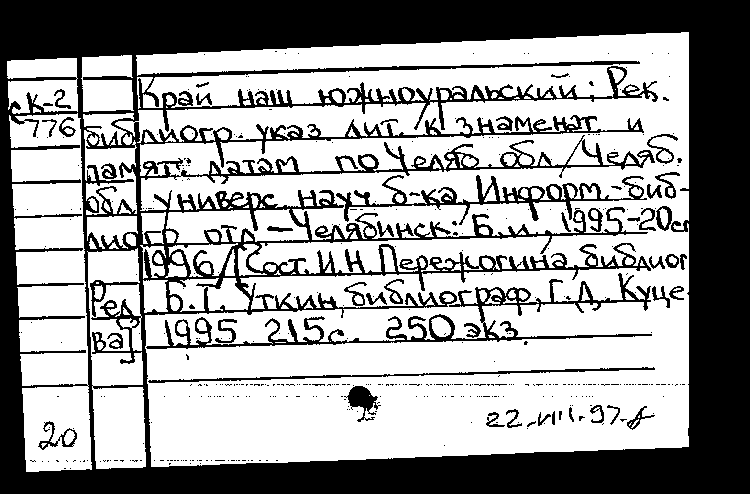 ск-2 Край наш южноуральский: Рек.
776 библиогр. указ. лит. к знаменат. и
памят. датам по Челяб. обл. / Челяб.
обл. универс. науч. б-ка, Информ.-биб-
лиогр. отд. – Челябинск: Б.и., 1995-20см
1996 / [Сост. И.Н. Пережогина, библиогр
Ред. Б.Т. Уткин, библиограф, Г.Д. Куце-
ва] 1995. 215с. 250 экз.
20 22.VIII.97.